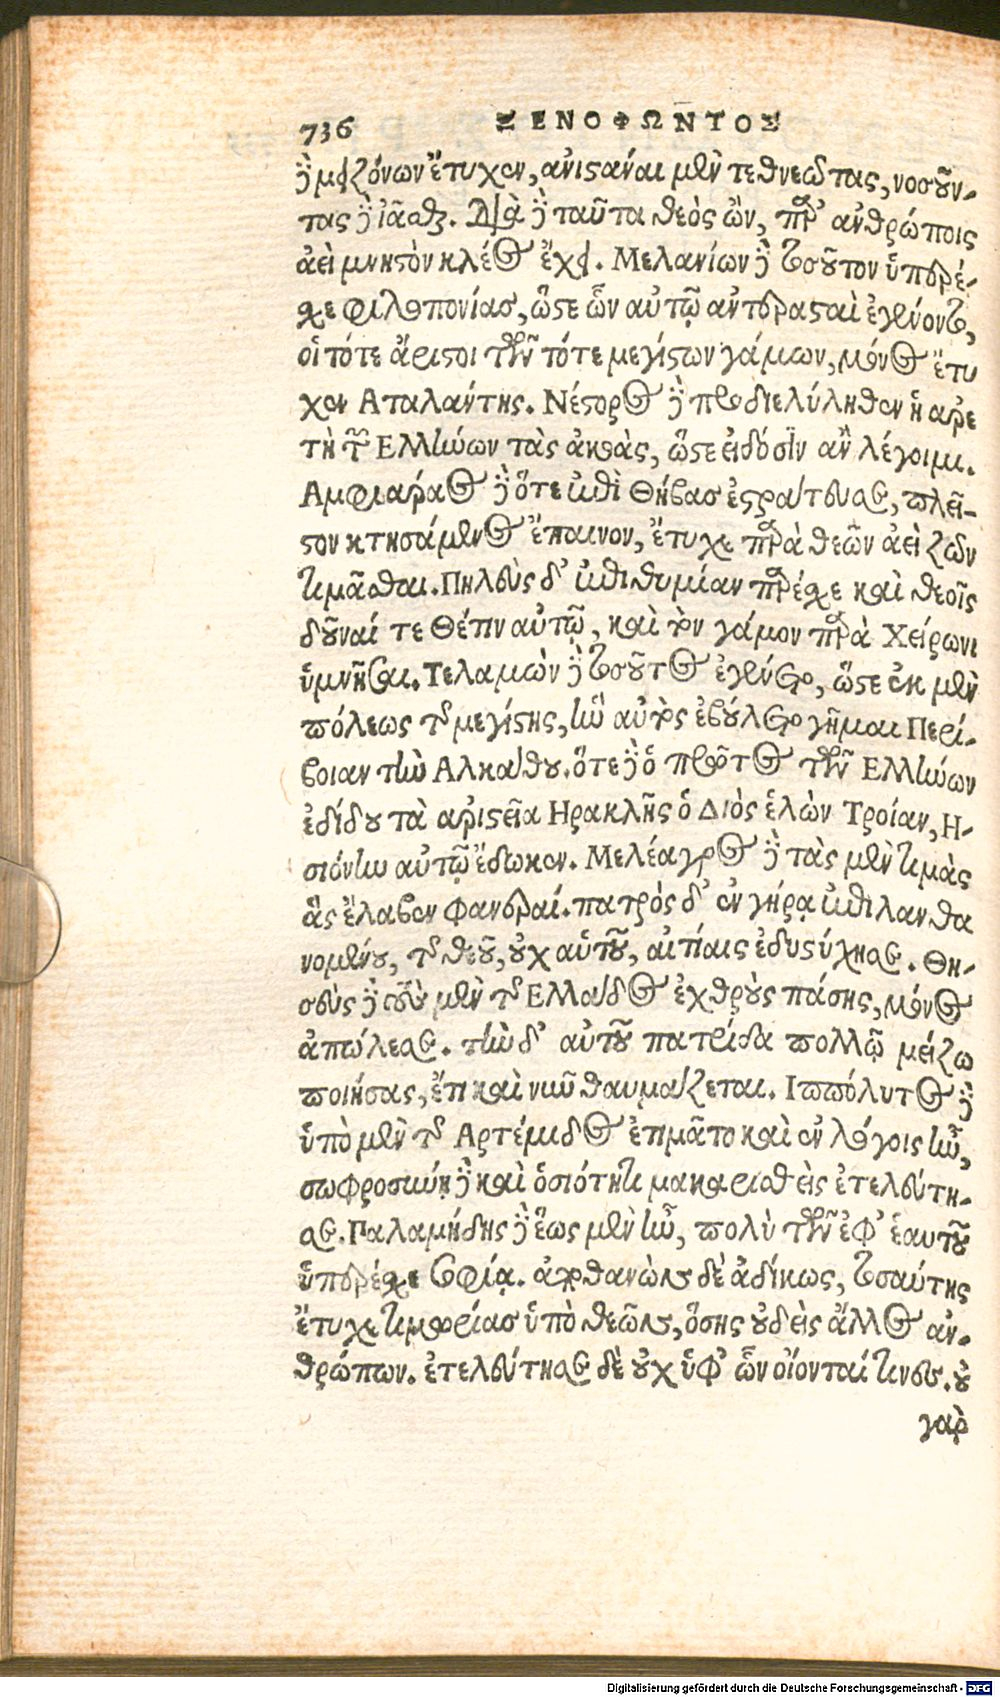 736 ΞΕΝΟΦΩΝΤΟΣ
δὲ μειζόνων ἔτυχεν, ἀνιστάναι μὲν τεθνεῶτας, νοσοῦν-
τας δὲ ἰᾶσθαι. Διὰ δὲ ταῦτα θεὸς ὢν, παρ' ἀνθρώποις
ἀεὶ μνηστὸν κλέος ἔχει. Μελανίων δὲ τοσοῦτον ὑπερέ-
σχε φιλοπονίας, ὥστε ὧν αὐτῷ ἀντερασταὶ ἐγένοντο,
οἱ τότε ἄριστοι τῶν τότε μεγίστων γάμων, μόνος ἔτυ
χεν Αταλάντης. Νέστορος δὲ προδιελύληθεν ἡ αρε
τὴ τῶν Ελλήνων τὰς ἀκοὰς, ὥστε εἰδόσιν ἂν λέγοιμι.
Αμφιαραος δὲ ὅτε ἐπὶ Θήβας ἐστράτευσε, πλεῖ-
στον κτησάμενος ἔπαινον, ἔτυχε παρὰ θεῶν ἀεὶ ζῶν
τιμᾶσθαι. Πηλεὺς δ' ἐπιθυμίαν παρέσχε καὶ θεοῖς
δοῦναί τε Θέτιν αὐτῷ, καὶ τὸν γάμον παρὰ Χείρωνι
ὑμνῆσαι. Τελαμὼν δὲ τοσοῦτος ἐγένετο, ὥστε ἐκ μὲν
πόλεως τῆς μεγίστης, ἣν αὐτὸς ἐβούλετο γῆμαι Περί-
βοιαν τὴν Αλκάθου. ὅτε δὲ ὁ πρῶτος τῶν Ελλήνων
ἐδίδου τὰ αριστεῖα Ηρακλῆς ὁ Διὸς ἑλὼν Τροίαν, Η-
σιόνην αὐτῷ ἔδωκεν. Μελέαγρος δὲ τὰς μὲν τιμὰς
ἃς ἔλαβεν φανεραί. πατρὸς δ' ἐν γήρᾳ ἐπιλανθα
νομένου, τῆς θεοῦ, οὐχ αὑτοῦ, αἰτίαις ἐδυστύχησε. Θη-
σεὺς δὲ τοὺς μὲν τῆς Ελλάδος ἐχθροὺς πάσης, μόνος
ἀπώλεσε. τὴν δ' αὑτοῦ πατρίδα πολλῷ μείζω
ποιήσας, ἔτι καὶ νῦν θαυμάζεται. Ιππόλυτος δὲ
ὑπὸ μὲν τῆς Αρτέμιδος ἐτιμᾶτο καὶ ἐν λόγοις ἦν,
σωφροσύνῃ δὲ καὶ ὁσιότητι μακαρισθεὶς ἐτελεύτη-
σε. Παλαμήδης δὲ ἕως μὲν ἦν, πολὺ τῶν ἐφ' ἑαυτοῦ
ὑπερέσχε σοφίᾳ. ἀποθανὼν δὲ ἀδίκως, τοσαύτης
ἔτυχε τιμωρίας ὑπὸ θεῶν, ὅσης οὐδεὶς ἄλλος ἀν-
θρώπων. ἐτελεύτησε δὲ οὐχ ὑφ' ὧν οἴονταί τινες. οὐ
γαρ
Digitalisierung gefördert durch die Deutsche Forschungsgemeinschaft - DFG